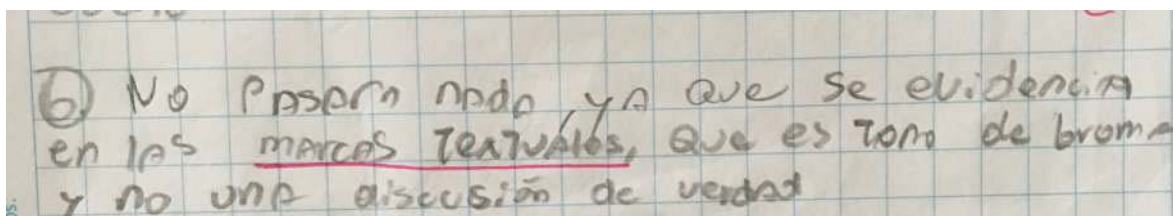 6) No Pasara nada, ya que se evidencia
en las marcas Textuales, que es tono de broma
y no una discusión de verdad